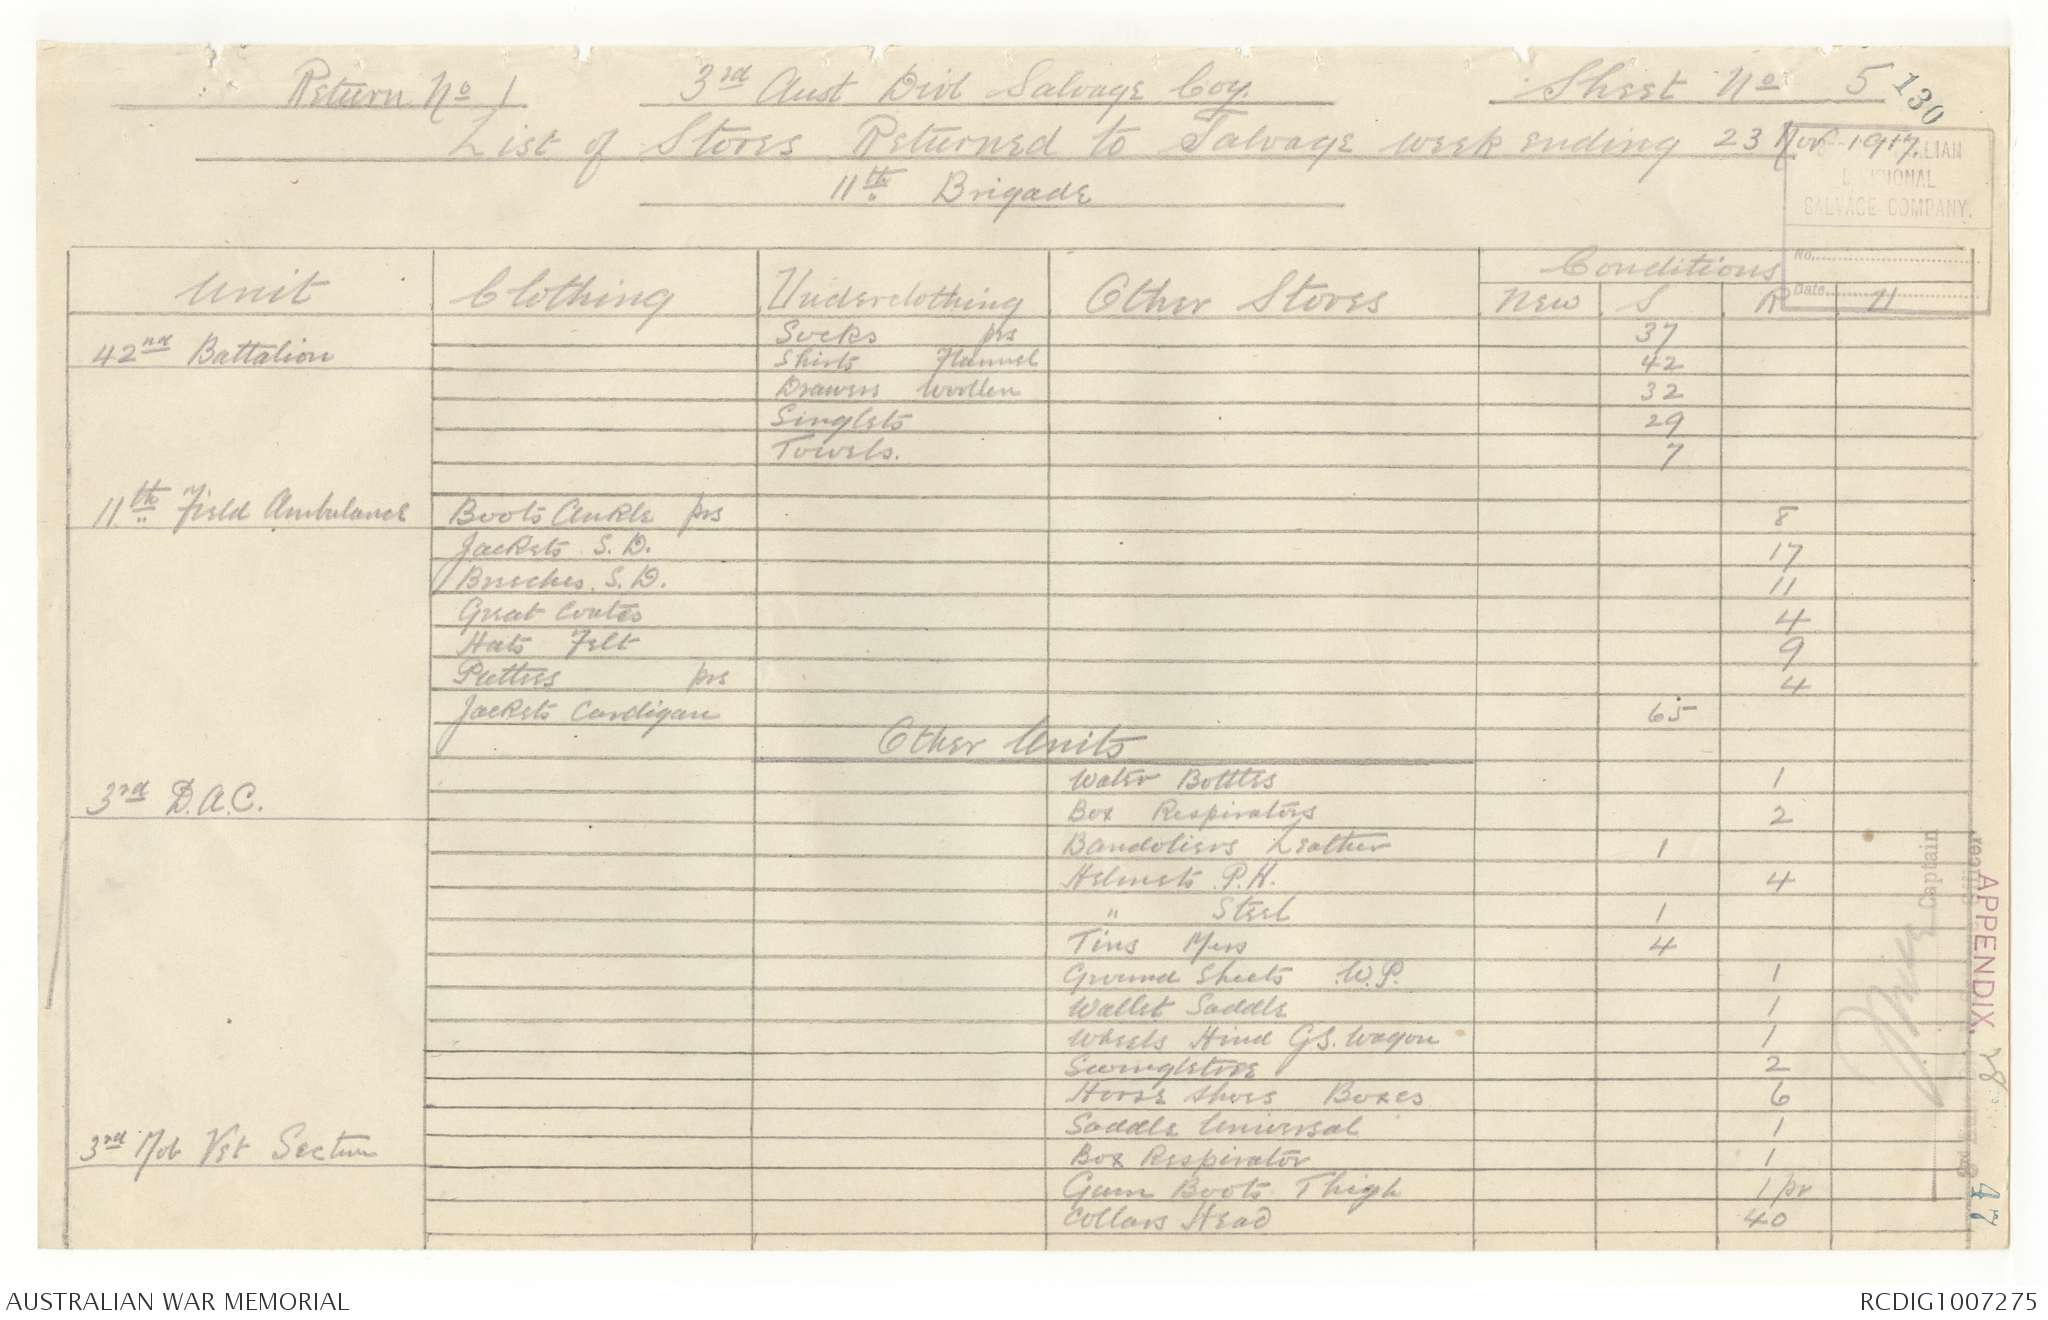 Return No 1 3rd Aust Divl Salvage Coy. Sheet No 5 130
List of Stores Returned to Salvage week ending 23 Nov 1917.
11th Brigade
DIVISIONAL
SALVAGE COMPANY.
No.
Date
Conditions
Unit Clothing Underclothing Other Stores New S R U
Socks prs 37
42nd Battalion Shirts Flannel 42
Drawers Woollen 32
Singlets 29
Towels. 7
11th Field Ambulance Boots Ankle prs 8
Jackets S.D. 17
Breeches. S.D. 11
Great Coates 4
Hats Felt 9
Puttees prs 4
Jackets Cardigan 65
Other Units
Water Botttes 1
3rd D.A.C. Box Respirators 2
Bandoliers Leather 1
Helmets P.H. 4
" Steel 1
Tins Mess 4
Ground Sheets W.P. 1
Wallet Saddle 1
Wheels Hind G.S. Wagon 1
Swingletree 2
Horse Shoes Boxes 6
Saddle Universal 1
3rd Mob Vet Section Box Respirator 1
Gum Boots Thigh 1 pr
Collars Head 40
Captain
APPENDIX. 28
47
AUSTRALIAN WAR MEMORIAL RCDIG1007275